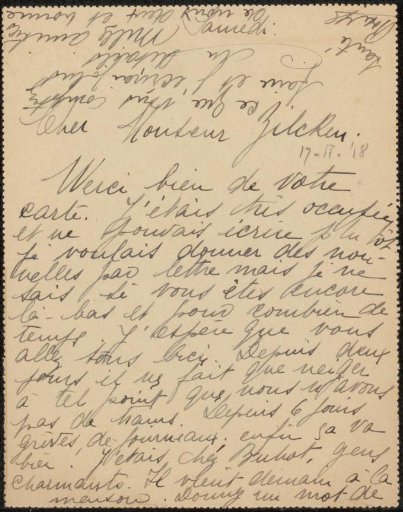 Samedi.
Cher Monsieur Zilcken.
17-II-'18
Merci bien de votre
carte. J'étais très occupée
et ne pouvais écrire plus tôt
Je voulais donner des nou-
velles par lettre mais je ne
sais si vous êtes encore
là-bas et pour combien de
temps. J'espère que vous
allez tous bien. Depuis deux
jours il ne fait que neiger
à tel point que nous n'avons
pas de trams. Depuis 6 jours
grèves, de journaux, enfin ça va
bien. J'étais chez Buhot, gens
charmants. Il vient demain à la
maison. Donnez un mot de
ce que vous comptez
faire et j'écrirai plus
de détails
Mille amitiés
de nous deux et bonne
santé